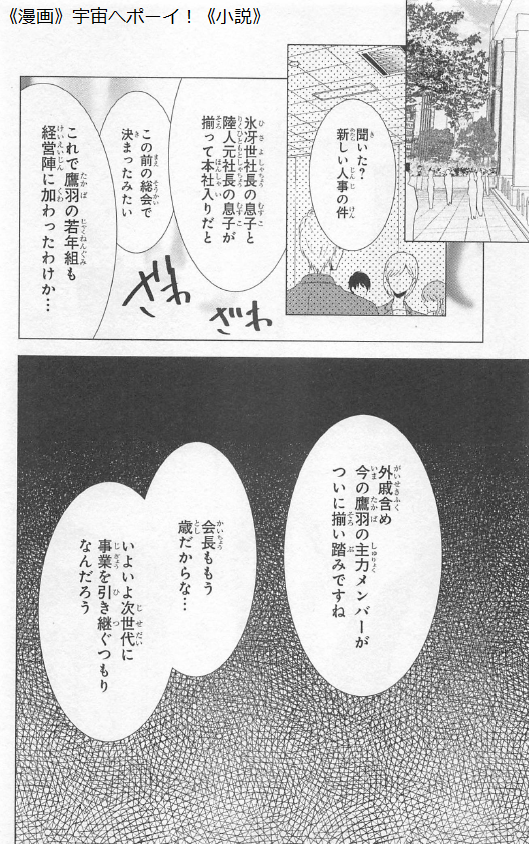 《漫画》宇宙へポーイ！《小説》
聞いた？
新しい人事の件
氷冴世社長の息子と
陸人元社長の息子が
揃って本社入りだと
この前の総会で
決まったみたい
これで鷹羽の若年組も
経営陣に加わったわけか…
ざわ
ざわ
外戚含め
今の鷹羽の主力メンバーが
ついに揃い踏みですね
会長ももう
歳だからな…
いよいよ次世代に
事業を引き継ぐつもり
なんだろう